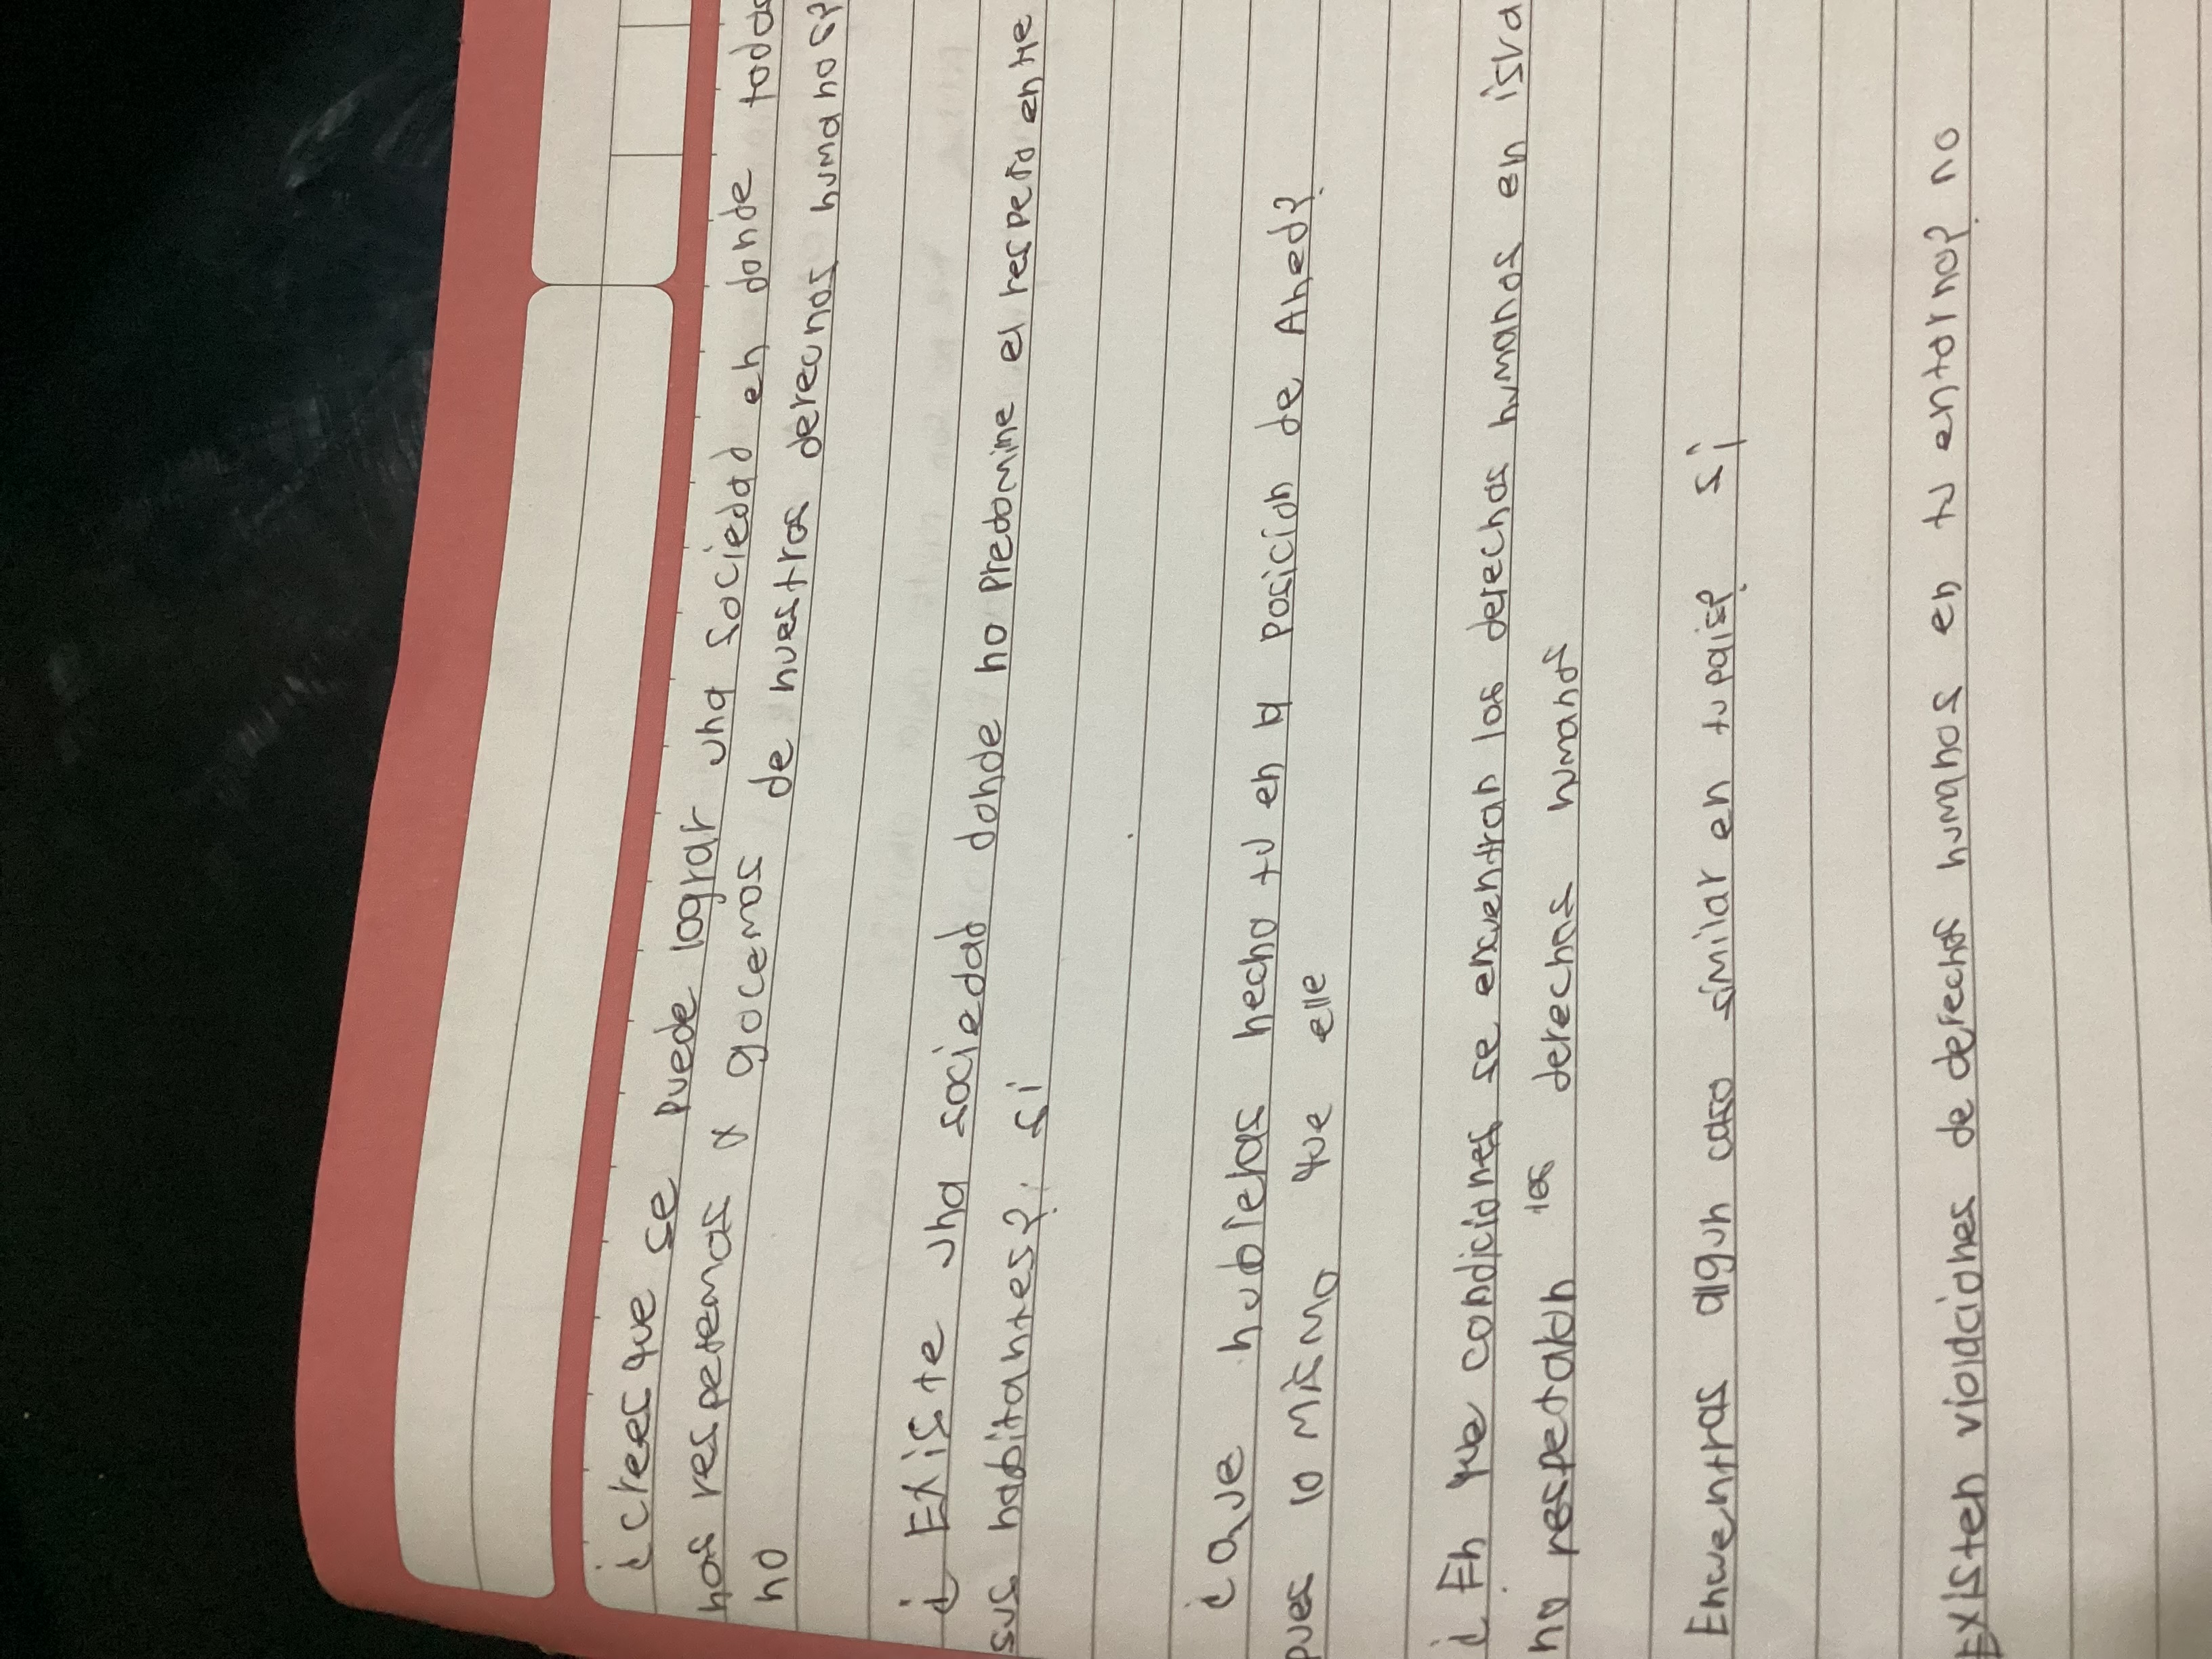 ¿ crees que se puede lograr una sociedad en donde todos
nos respetemos y gocemos de nuestros derecnos humanos?
no
¿ Existe una sociedad donde no Predomine el respeto entre
sus habitantes? si
¿ Que hubieras hecho tu en la posicion de Ahed?
pues lo mismo que elle
¿ En que condiciones se encuentran los derechos humanos en isra
no respetabn los derechos humanos
Encuentras algun caso similar en tu pais? si
Existen violaciones de derechos humanos en tu entorno? no